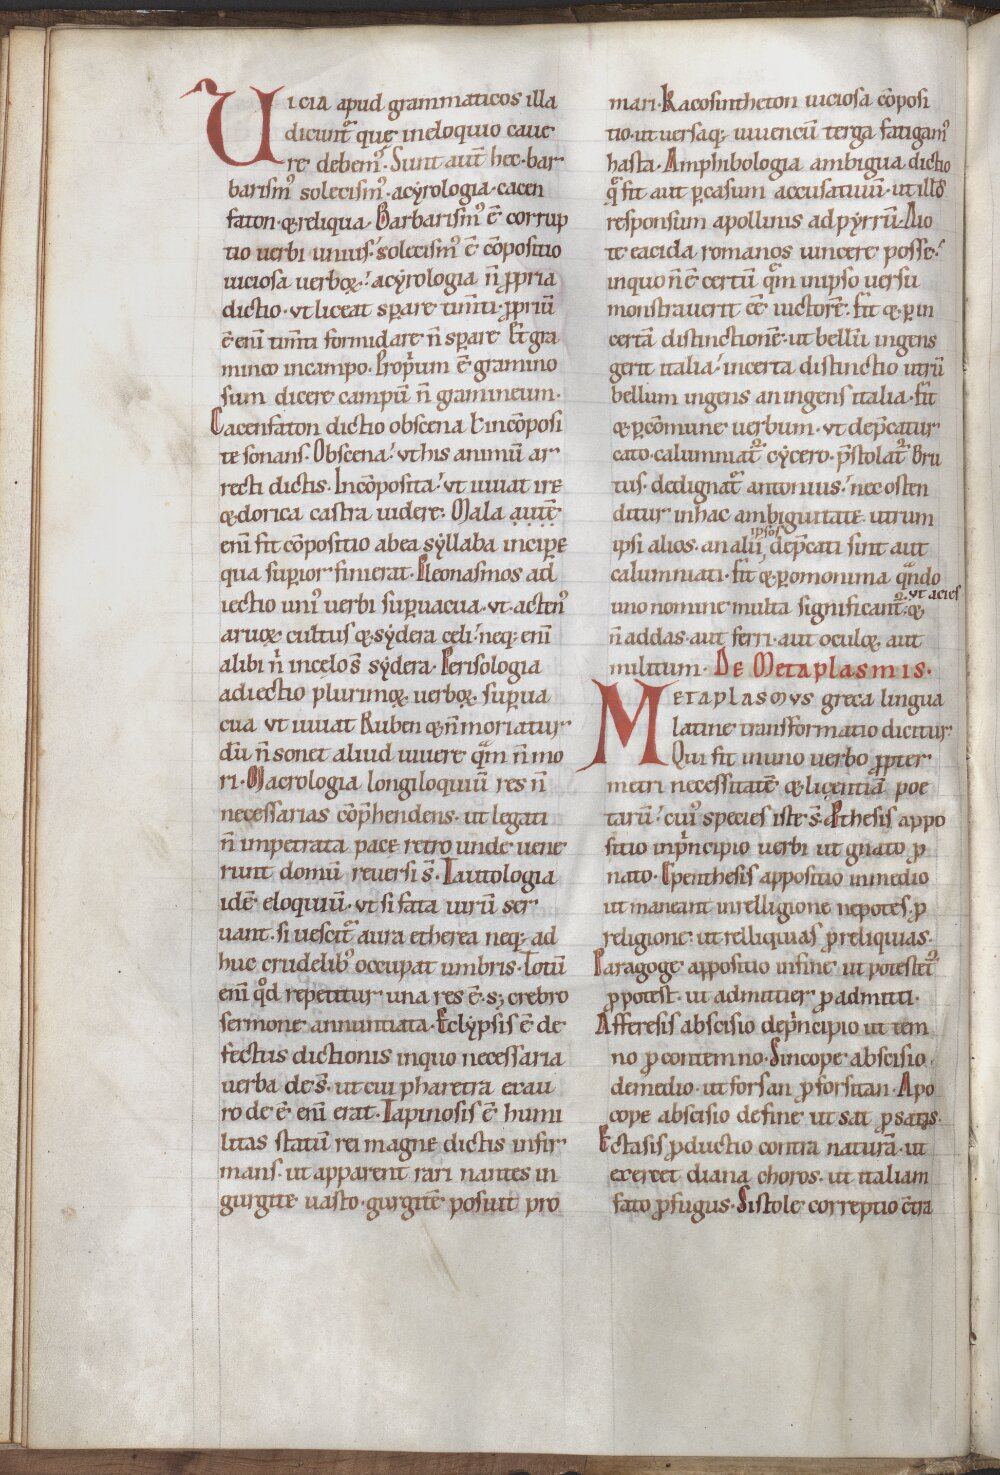 Uicia apud grammaticos illa
dicunt̃ que in eloquio caue
re debem᾽. Sunt aut̄ hec. bar
barism᾽ solecism᾽. acẏrologia. cacen
faton. & reliqua. Barbarism᾽ ē corrup
tio uerbi unius. solecism᾽ ē cōpositio
uiciosa uerboꝝ. acẏrologia n̄ ꝓpria
dictio. ut liceat sꝑare timēti. ꝓpriū
ē enī timēti formidare n̄ sꝑare & gra
mineo in campo. Propͥum ē gramino
sum dicere campū n̄ gramineum.
Cacenfaton dictio obscena ł incōposi
te sonans. Obscena. ut his animū ar
recti dictis. Incōposita. ut iuuat ire
& dorica castra uidere. Mala autē
enī fit cōpositio ab ea sẏllaba inciꝑe
qua suꝑior finierat. Pleonasmos ad
iectio uni᾽ uerbi suꝑuacua. ut actenᷤ
aruoꝝ cultus & sẏdera celi. neq; enī
alibi nͥ in celo s̄ sẏdera. Perisologia
adiectio plurimoꝝ uerboꝝ suꝑua
cua ut uiuat Ruben & n̄ moriatur
dū n̄ sonet aliud uiuere qͣm n̄ mo
ri. Macrologia longiloquiū res n̄
necessarias cōp̄hendens. ut legati
n̄ impetrata pace retro unde uene
runt domū reuersi s̄. Tautologia
idē eloquiū. ut si fata uirū ser
uant. si uescit̃ aura etherea neq; ad
huc crudelib᾽ occupat umbris. Totū
enī qͦd repetitur una res ē. s; crebro
sermone annuntiata. Eclẏpsis ē de
fectus dictionis in quo necessaria
uerba de s̄. ut cui pharetra ex au
ro de ē enī erat. Tapinosis ē humi
litas statū rei magne dictis infir
mans. ut apparent rari nantes in
gurgite uasto. gurgitē posuit pro
mari. Kacosintheton uiciosa cōposi
tio. ut uersaq; iuuencū terga fatigam᾽
hasta. Amphibologia ambigua dictio
q̃ fit aut ꝑ casum accusatiuū. ut illđ
responsum apollinis ad pẏrrū. Aio
te eacida romanos uincere posse.
in quo n̄ ē certū qͣm in ipso uersu
monstrauerit ēē uictorē. fit & ꝑ in
certā distinctionē. ut bellū ingens
gerit italia. incerta distinctio utrū
bellum ingens an ingens italia. fit
& ꝑ cōmune uerbum. ut dep̄catur
cato. calumniat᷑ cẏcero. p̄stolat᷑ Bru
tus. dedignat᷑ antonius. nec osten
ditur in hac ambiguitate utrum
ipsi alios. an alii ipsos dep̄cati sint aut
calumniati. fit & ꝑ omonima qͣndo
uno nomine multa significant᷑. ut acies &
n̄ addas. aut ferri. aut oculoꝝ aut
militum. De Metaplasmis.
Metaplasmus greca lingua
latine transformatio dicitur
Qui fit in uno uerbo ꝓpter
metri necessitatē & licentiā poe
tarū. cui᾽ species iste s̄. Pthesis appo
sitio in pͥncipio uerbi ut gnato ꝓ
nato. Epenthesis appositio in medio
ut maneant in relligione nepotes. ꝓ
religione. ut relliquias ꝓ reliquias.
Paragoge appositio in fine ut potestet᷑
ꝓ potest. ut admittier ꝓ admitti.
Afferesis abscisio de pͥncipio ut tem
no ꝓ contemno. Sincope abscisio
de medio. ut forsan ꝓ forsitan. Apo
cope abscisio de fine ut sat ꝓ satis.
Ectasis ꝓductio contra naturā. ut
exercet diana choros. ut italiam
fato ꝓfugus. Sistole correptio c̄tra